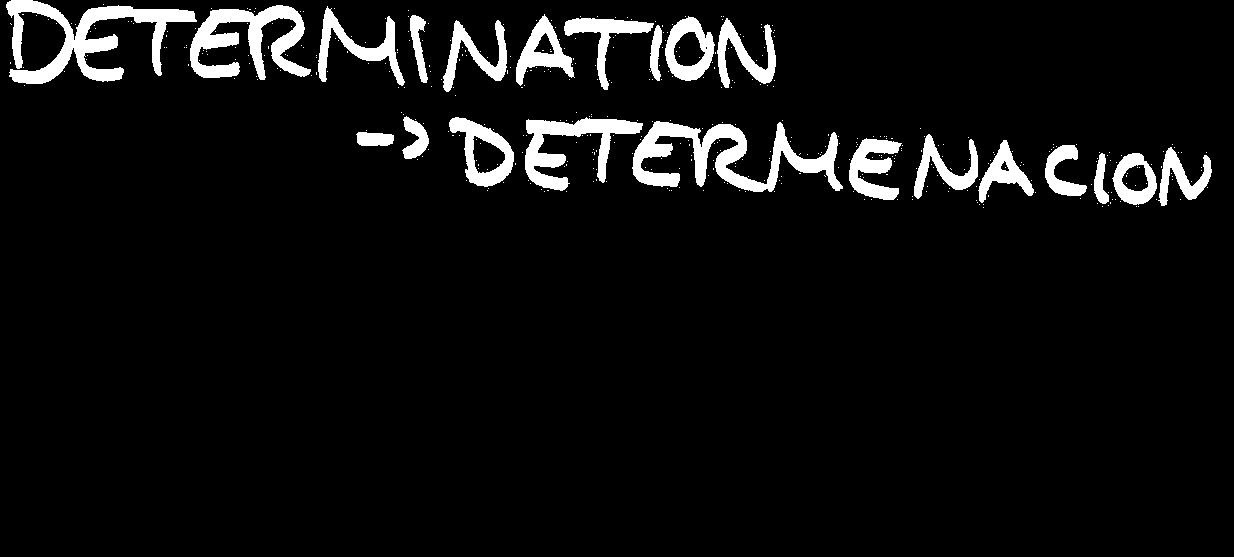 DETERMINATION
-> DETERMENACION